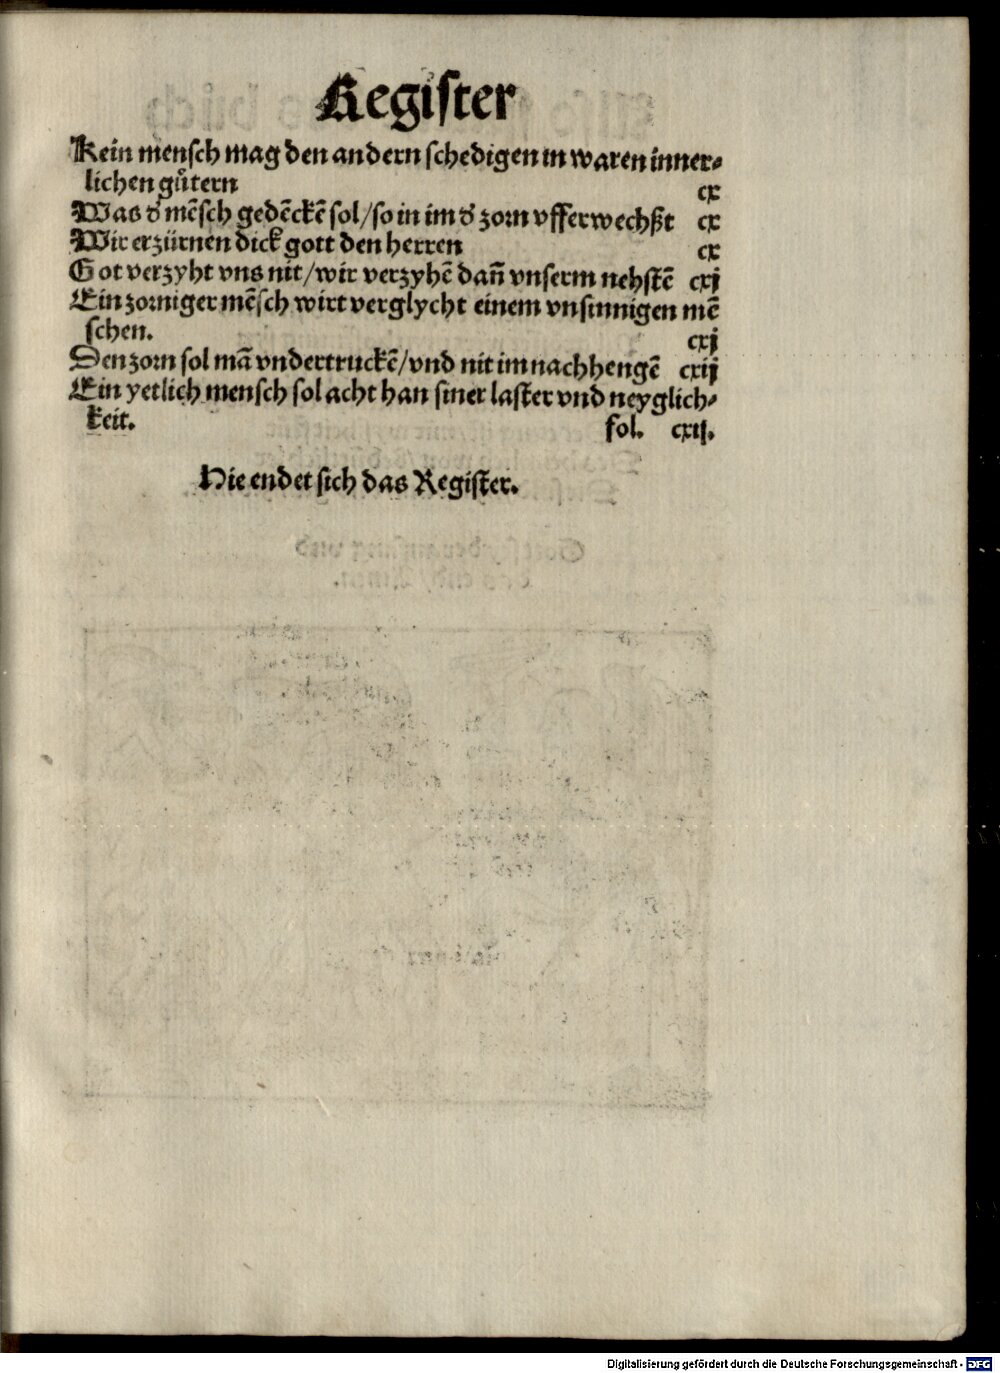 Register
Kein mensch mag den andern schedigen in waren inner-
lichen guͦtern cx
Was dʼ mẽsch gedẽckẽ sol/so in im dʼ zorn vfferwechßt cx
Wir erzürnen dick gott den herren cx
Got verzyht vns nit/wir verzyhẽ dañ vnserm nehstẽ cxj
Ein zorniger mẽsch wirt verglycht einem vnsinnigen mẽ
schen. cxj
Den zorn sol mã vndertruckẽ/vnd nit im nachhengẽ cxij
Ein yetlich mensch sol acht han siner laster vnd neyglich-
keit. fol. cxij.
Hie endet sich das Register.
Digitalisierung gefördert durch die Deutsche Forschungsgemeinschaft - DFG